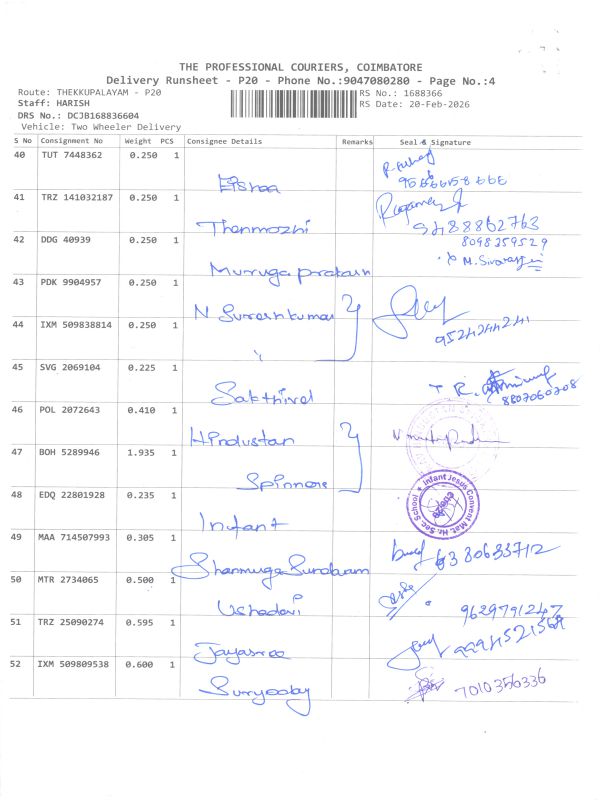 THE PROFESSIONAL COURIERS, COIMBATORE
Delivery Runsheet - P20 - Phone No.:9047080280 - Page No.:4
Route: THEKKUPALAYAM - P20
RS No.: 1688366
Staff: HARISH
RS Date: 20-Feb-2026
DRS No.: DCJB168836604
Vehicle: Two Wheeler Delivery
S No Consignment No Weight PCS Consignee Details Remarks Seal & Signature
40 TUT 7448362 0.250 1
41 TRZ 141032187 0.250 1 Thenmozhi
9488862763
42 DDG 40939 0.250 1 Muruga prakash
8098359529
43 PDK 9904957 0.250 1 N Sureshkumar
44 IXM 509838814 0.250 1 "
9524244241
45 SVG 2069104 0.225 1 Sakthivel
8807060708
46 POL 2072643 0.410 1 Hindustan
47 BOH 5289946 1.935 1 Spinners
48 EDQ 22801928 0.235 1 Infant
Infant Jesus Convent Mat. Hr. Sec. School
49 MAA 714507993 0.305 1 Shanmuga Sundaram
6380633712
50 MTR 2734065 0.500 1 Ushadevi
9629791247
51 TRZ 25090274 0.595 1 Jayasree
52 IXM 509809538 0.600 1
7010356336